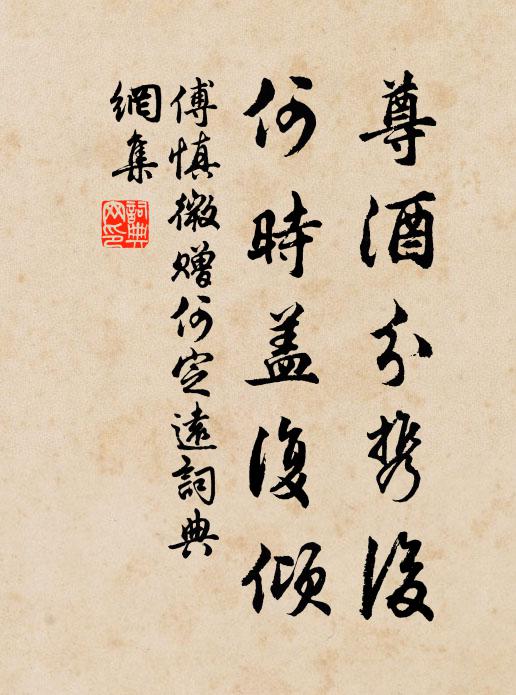 尊酒分携後
何時盖復傾
傅慎微贈何定遠詞典
網集
詞典
网印